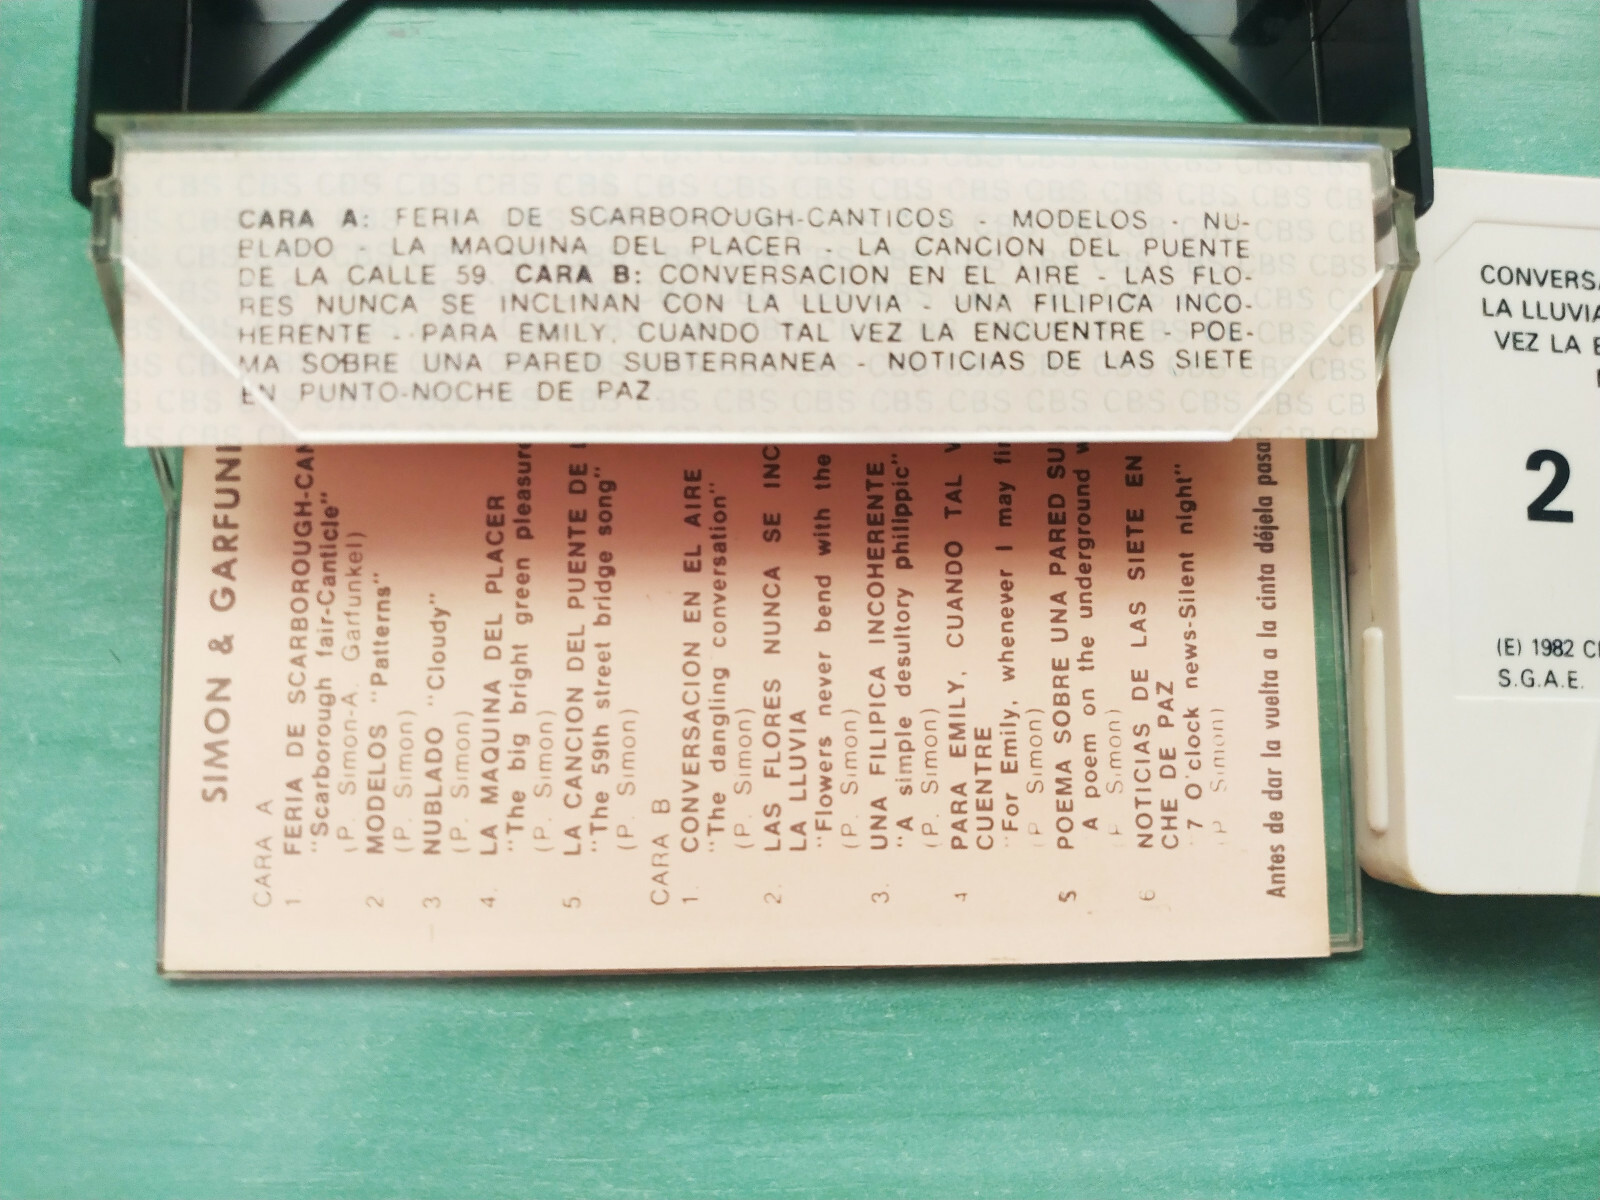 CBS CBS CBS CBS CBS CBS CBS CBS CBS CBS CBS CBS CBS CBS CBS CB
CARA A: FERIA DE SCARBOROUGH-CANTICOS - MODELOS - NU-
BLADO - LA MAQUINA DEL PLACER - LA CANCION DEL PUENTE
DE LA CALLE 59. CARA B: CONVERSACION EN EL AIRE - LAS FLO-
RES NUNCA SE INCLINAN CON LA LLUVIA - UNA FILIPICA INCO-
HERENTE - PARA EMILY, CUANDO TAL VEZ LA ENCUENTRE - POE-
MA SOBRE UNA PARED SUBTERRANEA - NOTICIAS DE LAS SIETE
EN PUNTO-NOCHE DE PAZ
SIMON & GARFUN
CARA A
1 FERIA DE SCARBOROUGH-CAN
"Scarborough fair-Canticle"
(P. Simon-A. Garfunkel)
2 MODELOS "Patterns"
(P. Simon)
3 NUBLADO "Cloudy"
(P. Simon)
4. LA MAQUINA DEL PLACER
"The big bright green pleasure
(P. Simon)
5 LA CANCION DEL PUENTE DE
"The 59th street bridge song"
(P. Simon)
CARA B
1. CONVERSACION EN EL AIRE
"The dangling conversation"
(P. Simon)
2. LAS FLORES NUNCA SE INC
LA LLUVIA
"Flowers never bend with the
(P. Simon)
3. UNA FILIPICA INCOHERENTE
"A simple desultory philippic"
(P. Simon)
4 PARA EMILY, CUANDO TAL V
CUENTRE
"For Emily, whenever I may fi
(P. Simon)
5 POEMA SOBRE UNA PARED SU
A poem on the underground w
(P. Simon)
6 NOTICIAS DE LAS SIETE EN
CHE DE PAZ
7 O'clock news-Silent night"
(P Simon)
Antes de dar la vuelta a la cinta déjela pasa
CONVERSA
LA LLUVIA
VEZ LA E
2
(E) 1982 C
S.G.A.E.